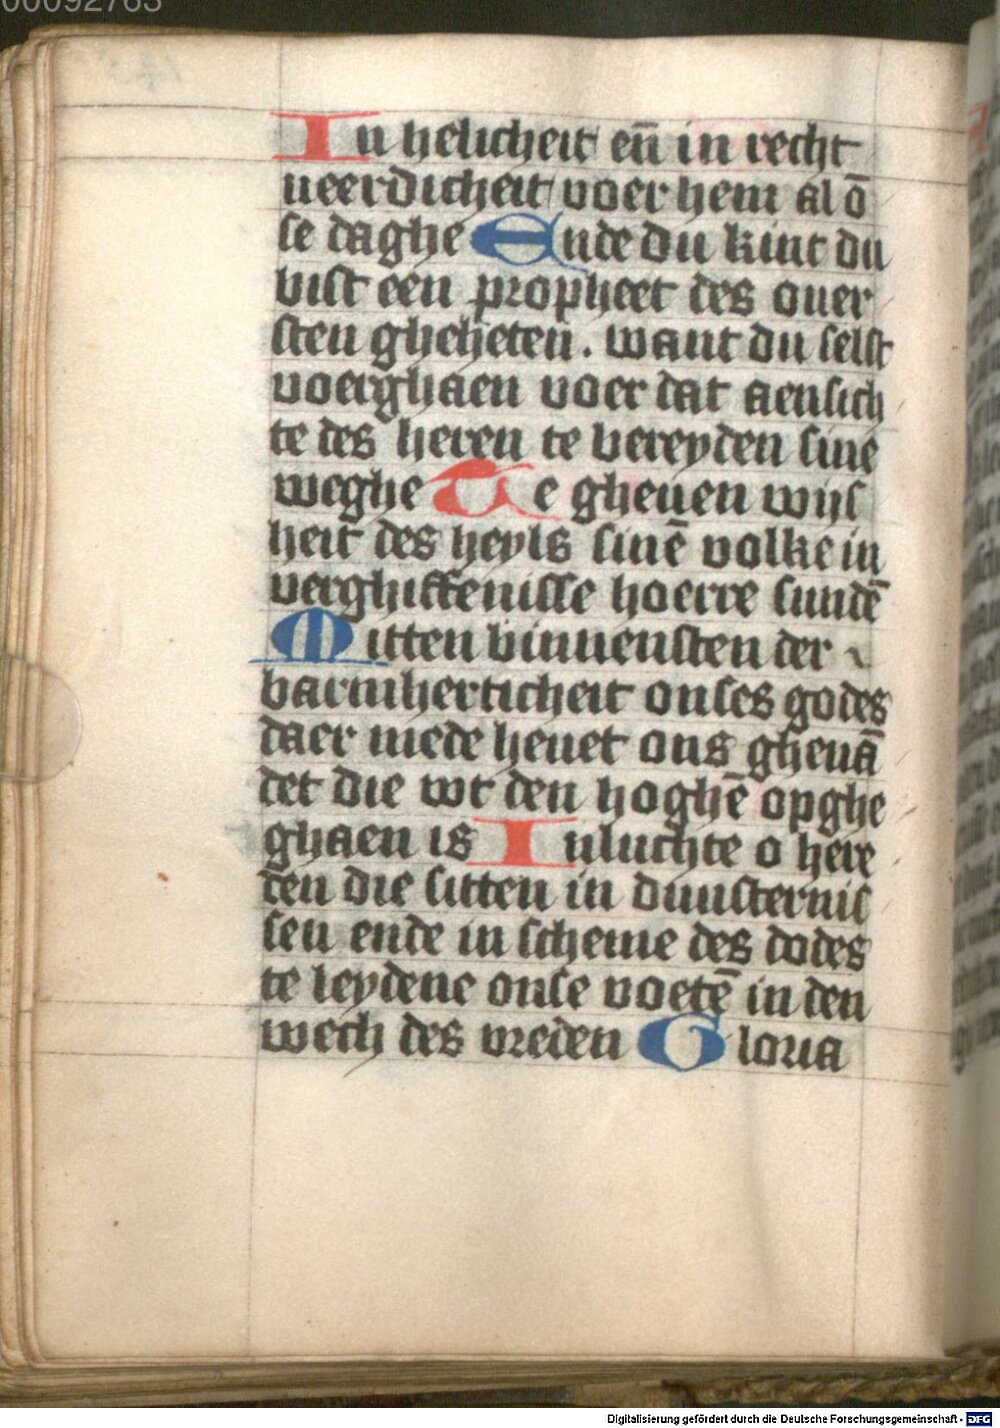 00092763
In helicheit en̄ in recht
ueerdicheit voer hem al ō
se daghe Ende du kint du
bist een propheet des ouer
sten gheheten. want du selst
voerghaen voer dat aensich
te des heren te bereyden sine
weghe Te gheuen wijs
heit des heyls sinē volke in
verghiffenisse hoerre sundē
Mitten binnensten der
barmherticheit onses godes
daer mede heuet ons gheuā
det die wt den hoghē opghe
ghaen is Inluchte o here
den die sitten in duusternis
sen ende in scheme des dodes
te leydene onse voetē in den
wech des vreden Gloria
Digitalisierung gefördert durch die Deutsche Forschungsgemeinschaft - DFG